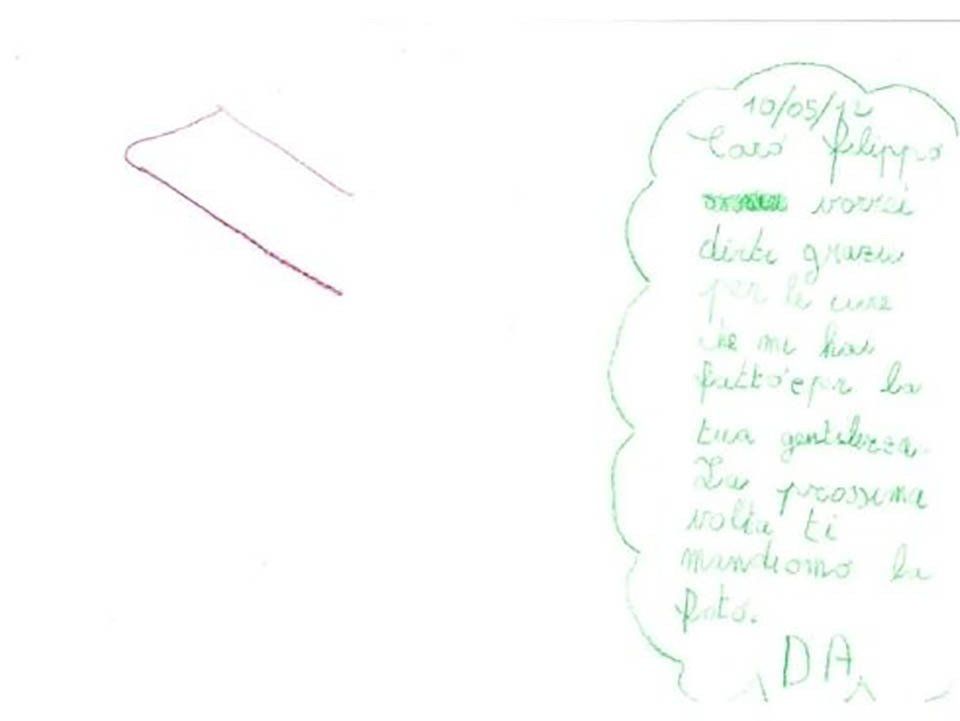 10/05/12
Caro Filippo
vorrei
dirti grazie
per le cure
che mi hai
fatto e per la
tua gentilezza.
La prossima
volta ti
mandiamo la
foto.
DA